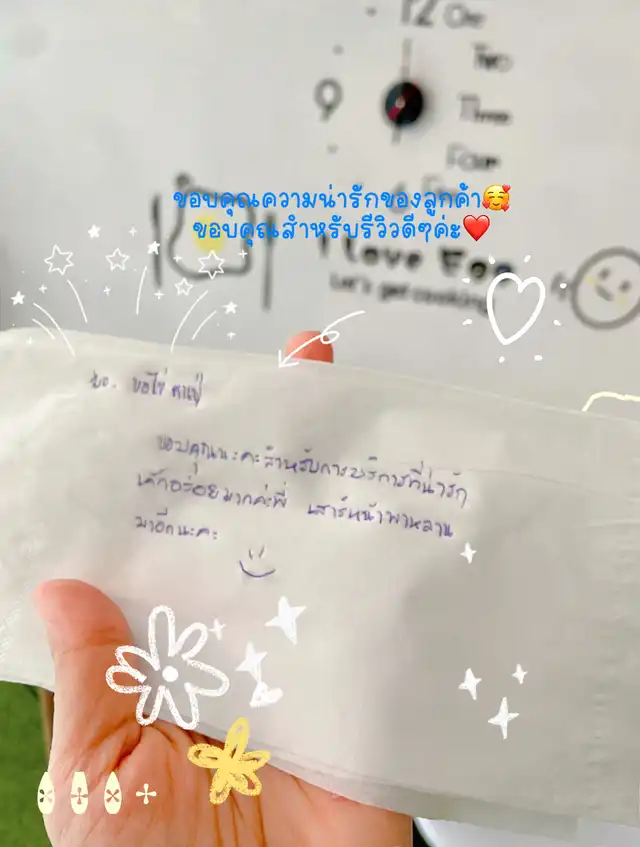 12 One
Two
9
Three
Four
ขอบคุณความน่ารักของลูกค้า🥰
ขอบคุณสำหรับรีวิวดีๆค่ะ❤️
I Love Egg
Let's get cooking
ขอบคุณนะคะสำหรับการบริการที่น่ารัก
เค้กอร่อยมากค่ะพี่ เสาร์หน้าพาหลาน
มาอีกนะคะ